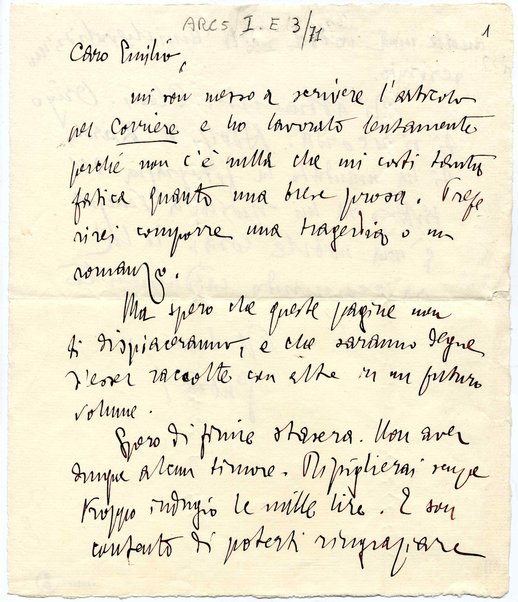 ARCS I. E 3/71
1
Caro Emilio,
mi son messo a scrivere l'articolo
pel Corriere e ho lavorato lentamente
perché non c'è nulla che mi costi tanta
fatica quanto una breve prosa. Prefe
rirei comporre una tragedia o un
romanzo.
Ma spero che queste pagine non
ti dispiaceranno, e che saranno degne
d'esser raccolte con altre in un futuro
volume.
Spero di finire stasera. Non aver
dunque alcun timore. Ripiglierai senza
troppo indugio le mille lire. E son
contento di poterti ringraziare